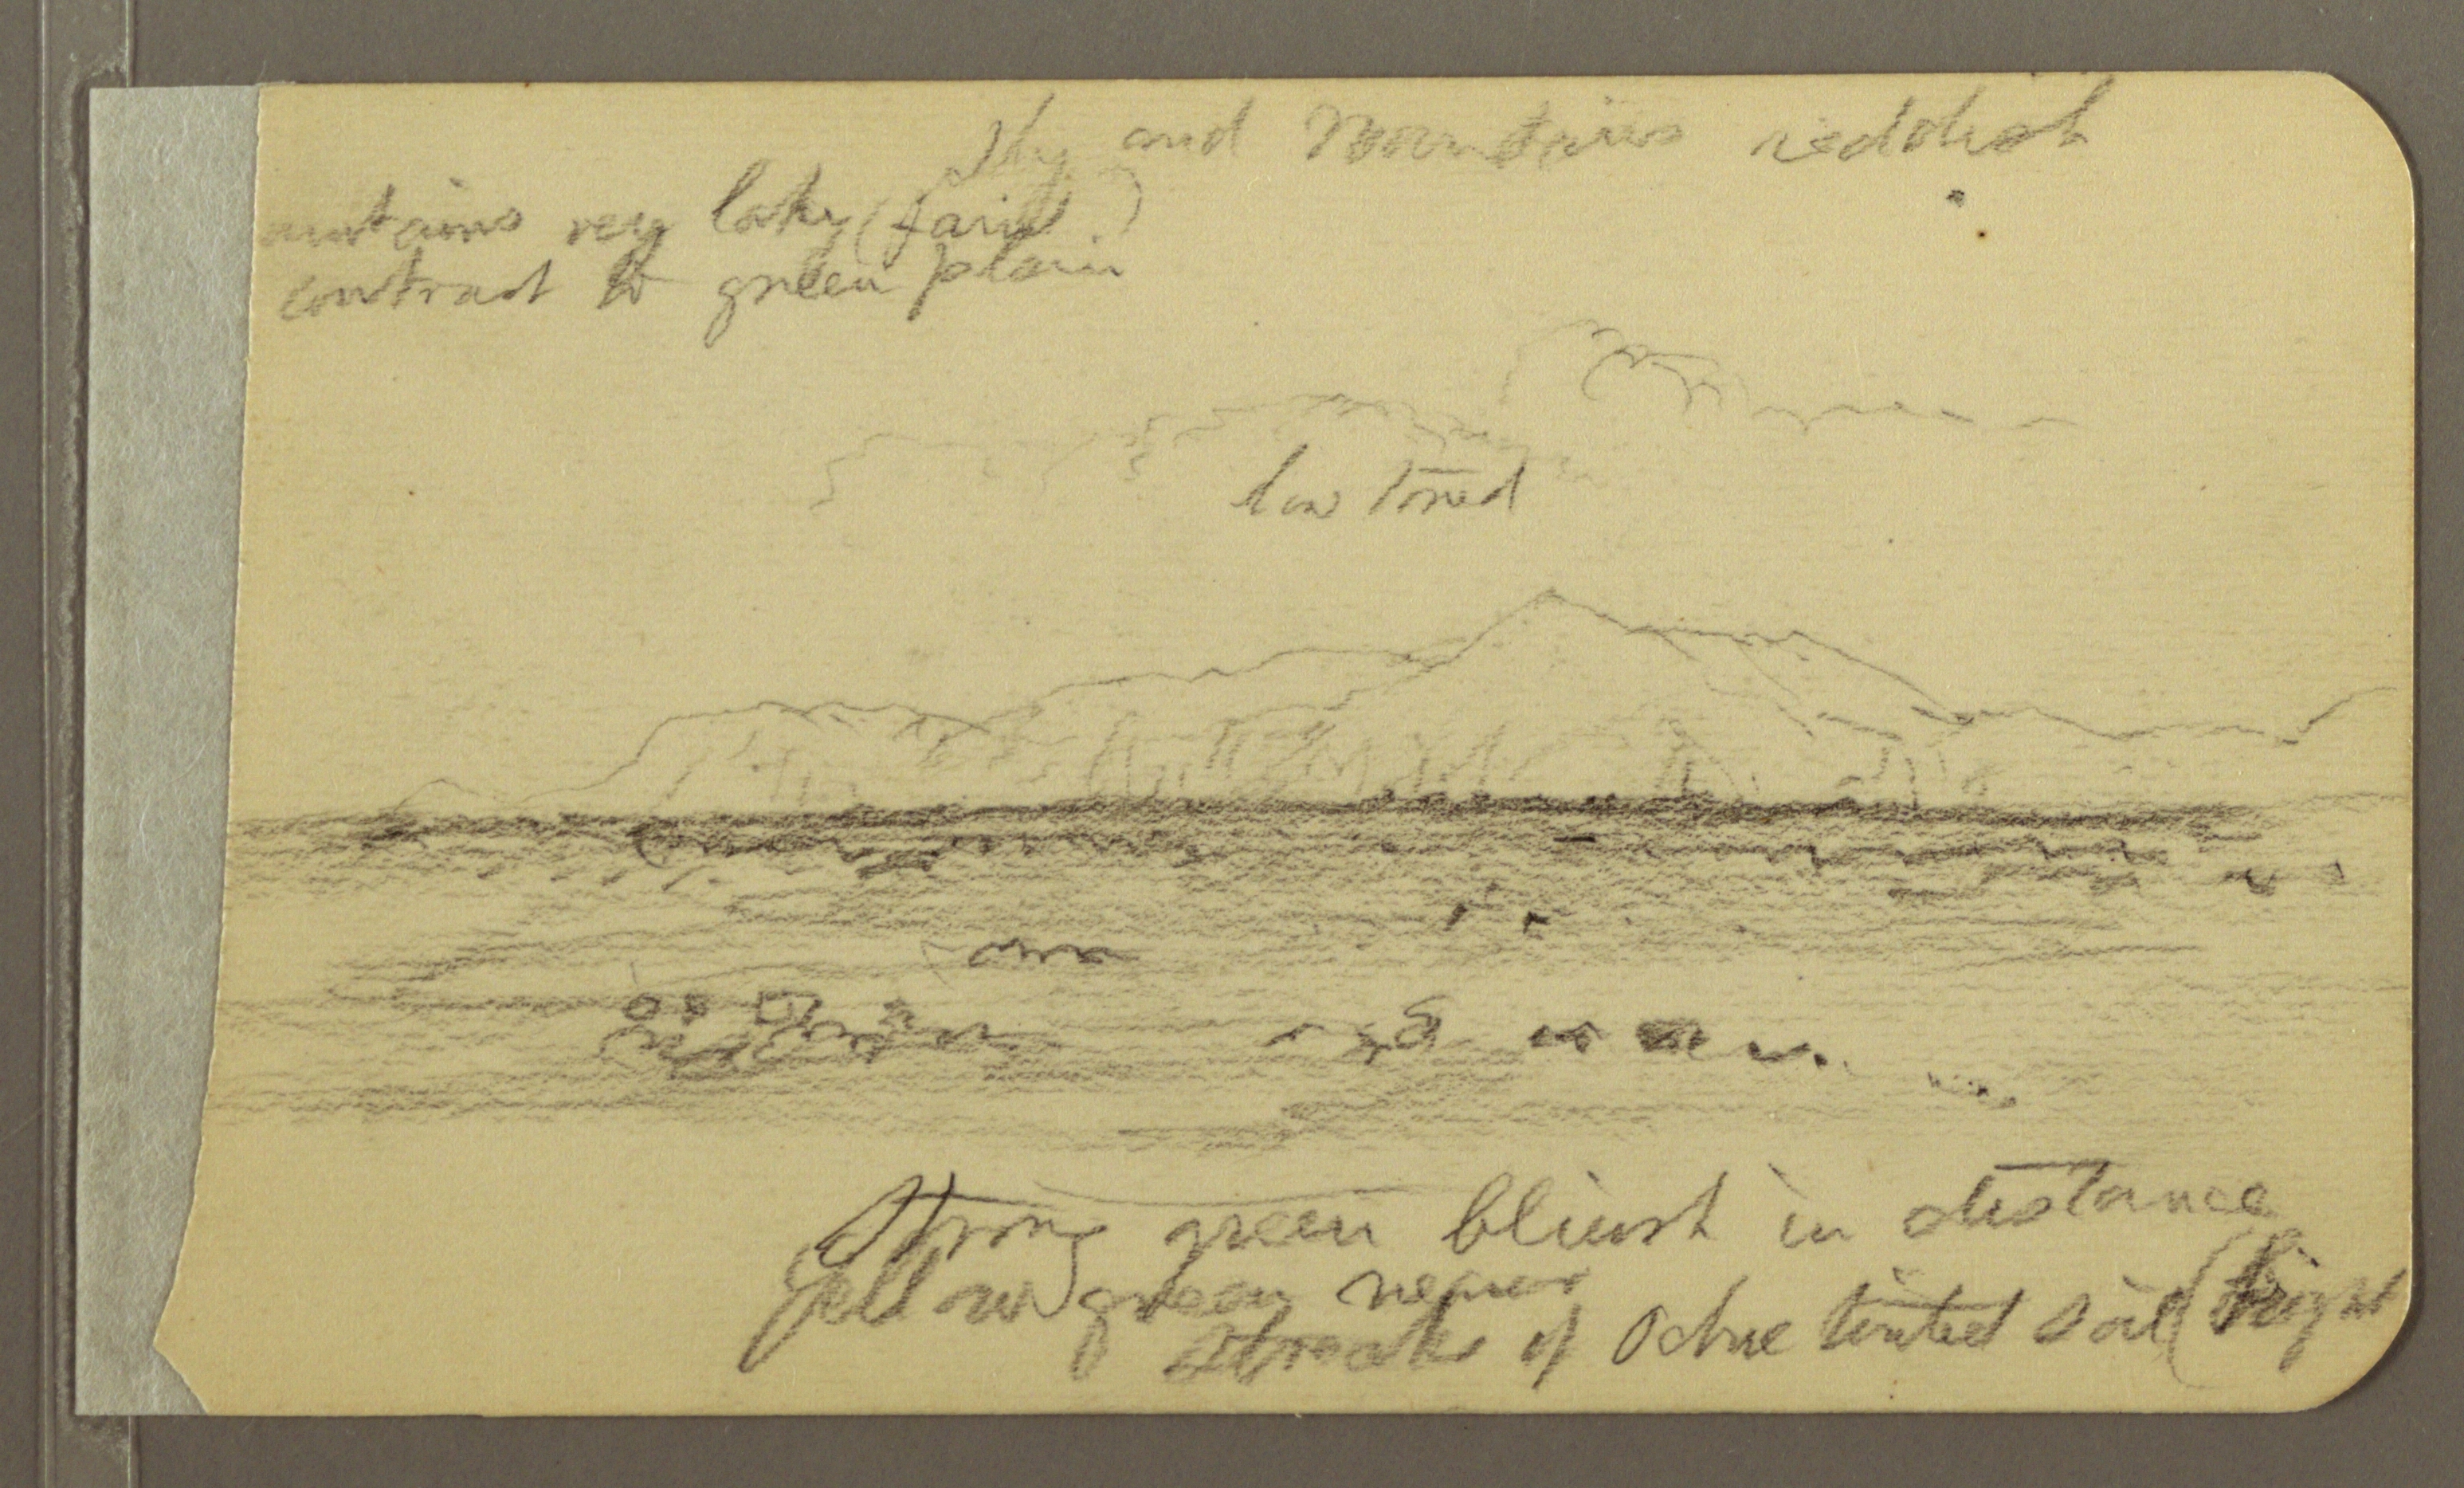 Sky and Mountains reddish
mountains very laky (faint)
contrast to green plain
low toned
Strong green bluish in distance
yellow green nearer
streaks of Ochre tinted soil (bright